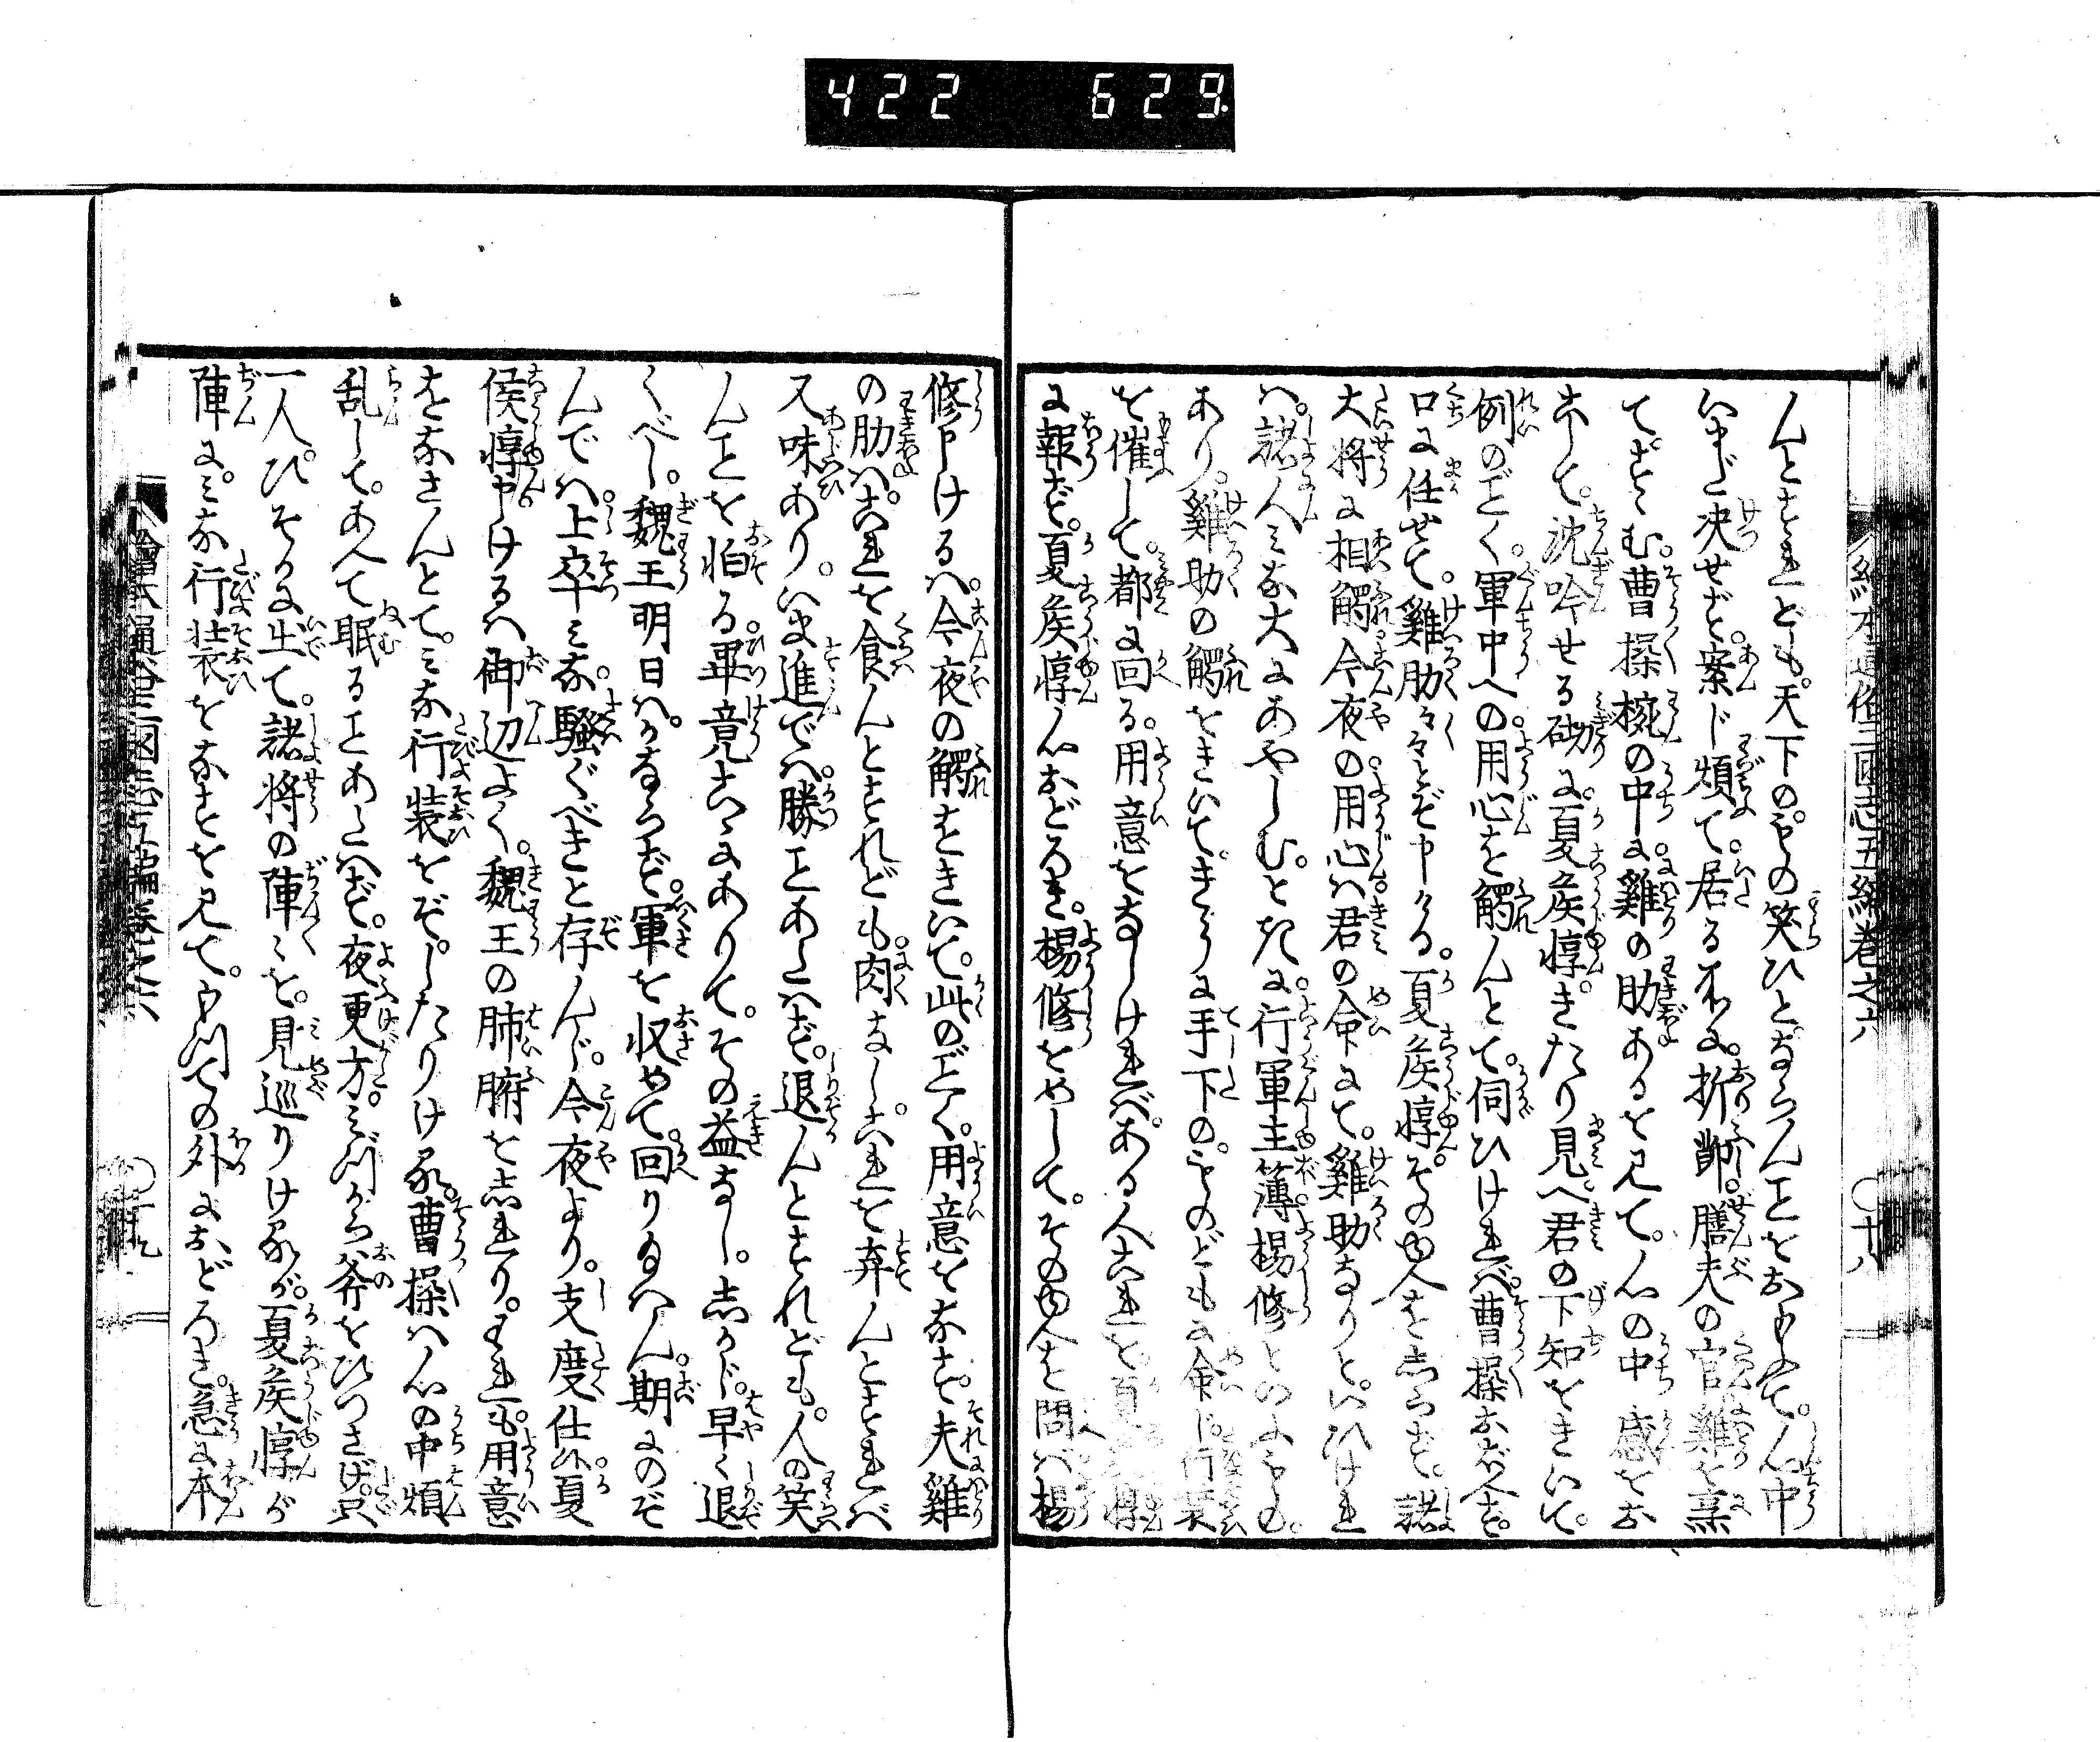 422 629
絵本通俗三国志五編巻之六 ○十八
んとすれども。天下のものゝ笑ひとならんことをおもひて。心中
いまだ決せず。案じ煩て。居る所に。折節。膳夫の官雞を烹
てすゝむ。曹操椀の中に。雞の肋あるを見て。心の中感をお
こして。沈吟せる砌に。夏侯惇。きたり見へ。君の下知をきいて。
例のごとく。軍中への。用心を触んとて。伺ひければ。曹操おぼへず。
口に任せて。雞肋々々とぞ申ける。夏侯惇。その由へを志らず。諸
大将に相触。今夜の。用心は。君の命にて。雞肋なりと。いひけれ
ば。諸人みな大にあやしむ。ときに。行軍主簿。楊修といふもの。
あり。雞肋の触をきいて。きうに手下の。ものどもに命じ。行装
を催して。都に回る。用意をなしければ。ある人これを夏侯惇
に報ず。夏侯惇心おどろき。楊修をめして。その由へを問ば。楊
修申けるは。今夜の触をきいて。此のごとく。用意をなす。夫雞
の肋は。これを食んとすれども。肉なし。これを弃んとすれば
又味あり。いま進では。勝ことあたはず。退んとすれども。人の笑
んことを怕る。畢竟こゝにありて。その益なし。志かじ。早く退
くべし。魏王明日は。かならず。軍を収めて回り玉はん。期にのぞ
んでは。士卒みな。騒ぐべきと存んじ。今夜より。支度仕候。夏
侯惇申けるは。御辺よく。魏王の肺腑を志れり。それも。用意
をなさんとて。みな行装をぞしたりける。曹操は心の中煩
乱して。あへて眠ることあたはず。夜更方。みづから斧をひつさげ。只
一人。ひそかに出て。諸将の陣々を。見巡りけるが。夏侯惇が
陣に。みな行装をなすを見て。もつての外におどろき。急に本
絵本通俗三国志五編巻之六 ○十九